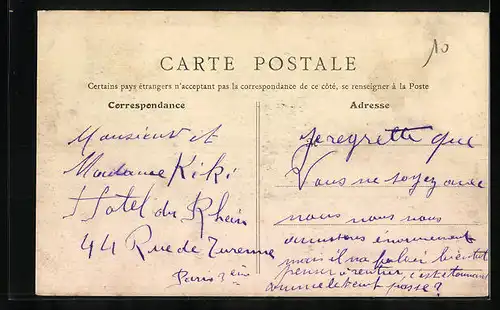 10
CARTE POSTALE
Certains pays étrangers n'acceptant pas la correspondance de ce côté, se renseigner à la Poste
Correspondance
Adresse
Monsieur et
Madame Kiki
Hotel du Rhein
44 Rue de Turenne
Paris 3ème
Je regrette que
Vous ne soyez avec
nous nous nous
amusons énormement
mais il va falloir bientot
penser à rentrer, c'est etonnant
comme le temps passe?